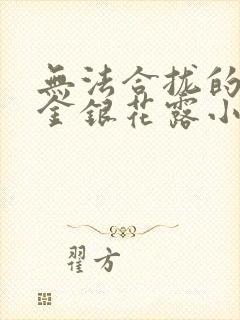 無法合拢的
金銀花露小
翟方